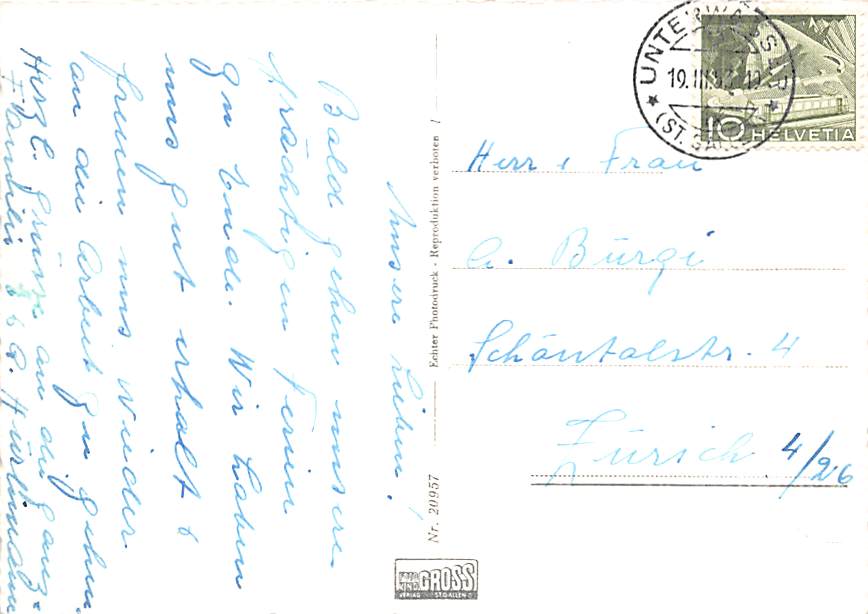 Unsere Lieben!
Bald gehen unsere
prächtigen Ferien
zu Ende. Wir haben
uns gut erholt &
freuen uns wieder
an die Arbeit zu gehen.
Herzl. Grüsse an die ganze
Familie
Hürlimann
Echter Photodruck - Reproduktion verboten
Nr. 20957
FOTO GROSS
VERLAG ST. GALLEN
UNTERWASSER
19.III.
(ST. GALLEN)
10 HELVETIA
Herr & Frau
A. Bürgi
Schöntalstr. 4
Zürich 4/26